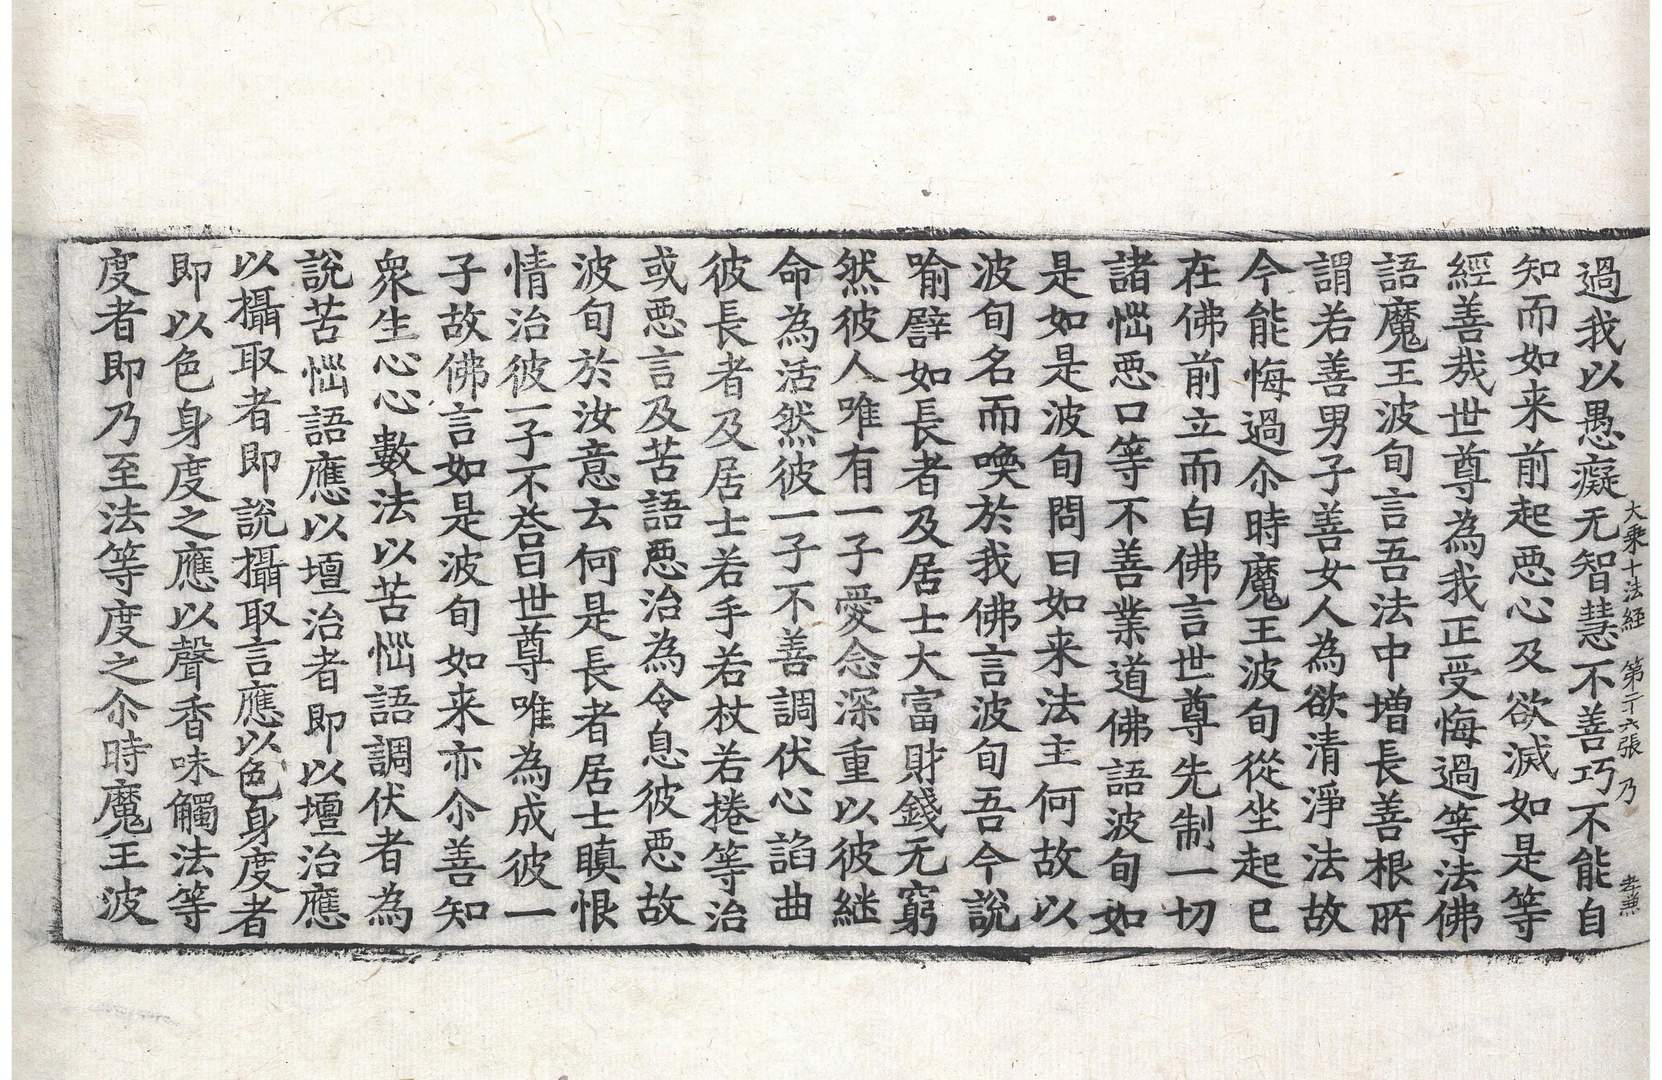 過我以愚癡无智慧不善巧不能自
大乘十法経 第二十六張 乃
知而如来前起悪心及欲滅如是等
經善㢤世尊為我正受悔過等法佛
語魔王波旬言吾法中增長善根所
謂若善男子善女人為欲清淨法故
今能悔過尒時魔王波旬從坐起已
在佛前立而白佛言世尊先制一切
諸惱悪口等不善業道佛語波旬如
是如是波旬問曰如来法主何故以
波旬名而喚於我佛言波旬吾今說
喻譬如長者及居士大富財錢无窮
然彼人唯有一子愛念深重以彼継
命為活然彼一子不善調伏心諂曲
彼長者及居士若手若杖若捲等治
或悪言及苦語悪治為令息彼悪故
波旬於汝意云何是長者居士瞋恨
情治彼一子不荅曰世尊唯為成彼一
子故佛言如是波旬如来亦尒善知
衆生心心數法以苦惱語調伏者為
說苦惱語應以壇治者即以壇治應
以攝取者即說攝取言應以色身度者
即以色身度之應以聲香味觸法等
度者即乃至法等度之尒時魔王波